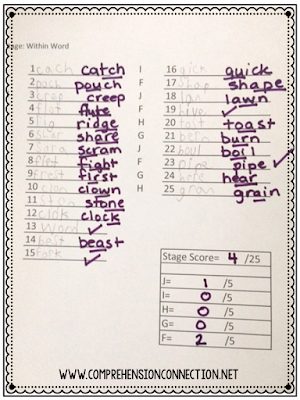 age: Within Word
1 cach catch I
2 poch pouch F
3 crep creep J
4 flut flute F
5 rig ridge H
6 shar share G
7 scram J
8 fight F
9 frost first G
10 clown H
11 ston stone
12 clok clock
13 Word ✓
14 best beast
15 fork ✓
16 qick quick I
17 shap shape F
18 lan lawn J
19 five ✓ F
20 tost toast H
21 burn G
22 boil J
23 pipe pipe ✓ F
24 here hear G
25 gran grain H
Stage Score= 4 /25
J= 1 /5
I= 0 /5
H= 0 /5
G= 0 /5
F= 2 /5
WWW.COMPREHENSIONCONNECTION.NET